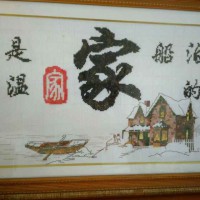 是温
家
家
船泊的